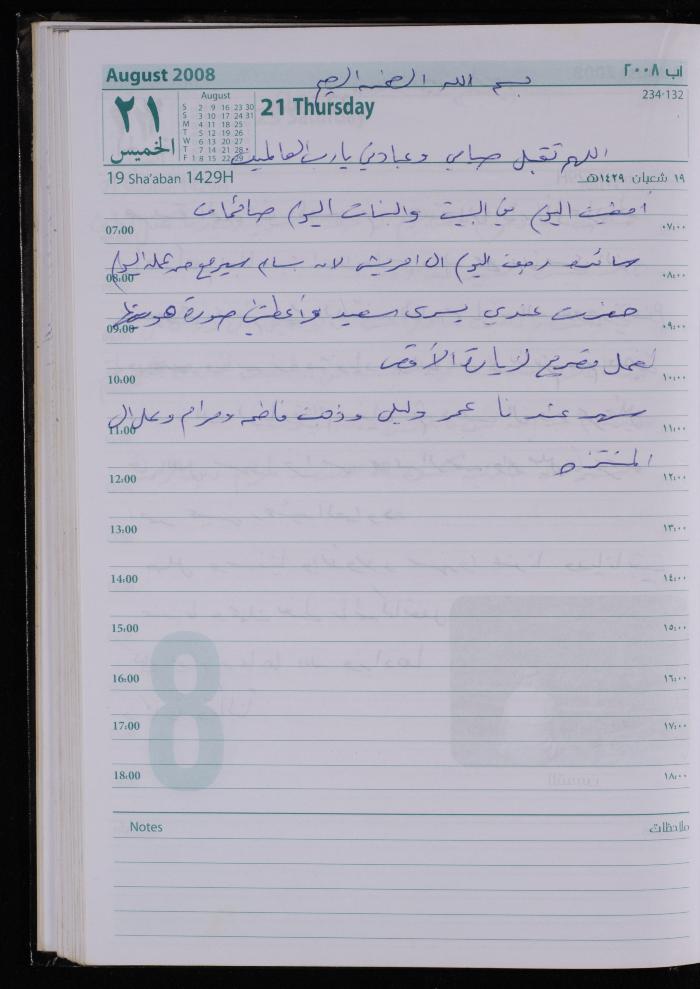 August 2008
آب ٢٠٠٨
بسم الله الرحمن الرحيم
٢١
الخميس
August
S 2 9 16 23 30
S 3 10 17 24 31
M 4 11 18 25
T 5 12 19 26
W 6 13 20 27
T 7 14 21 28
F 1 8 15 22 29
21 Thursday
234-132
اللهم تقبل صيامي وعبادتي يا رب العالمين
19 Sha'aban 1429H
١٩ شعبان ١٤٢٩هـ
أمضيت اليوم في البيت والبنات اليوم صائمات
07:00
٠٧:٠٠
اليوم لان بسام سيرجع من عمله اليوم
08:00
٠٨:٠٠
حضرت عندي يسرى سعيد وأعطتني صورة هويتها
09:00
٠٩:٠٠
لعمل تصريح لزيارة الأقصى
10:00
١٠:٠٠
سهر عندنا عمر وليلى وذهبت فاطمه ومرام وعلا الى
11:00
١١:٠٠
المنتزه
12:00
١٢:٠٠
13:00
١٣:٠٠
14:00
١٤:٠٠
15:00
١٥:٠٠
16:00
١٦:٠٠
17:00
١٧:٠٠
18:00
١٨:٠٠
8
Notes
ملاحظات